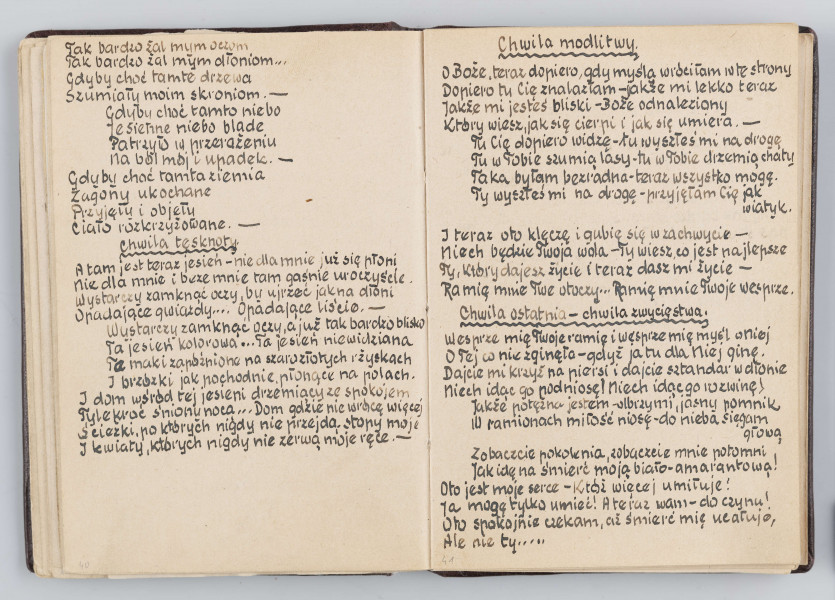 Tak bardzo żal mym oczom
Tak bardzo żal mym dłoniom...
Gdyby choć tamte drzewa
Szumiały moim skroniom. —
Gdyby choć tamto niebo
Jesienne niebo blade
Patrzyło w przerażeniu
Na ból mój i upadek. —
Gdyby choć tamta ziemia
Zagony ukochane
Przyjęły i objęły
Ciało rozkrzyżowane. —
Chwila tęsknoty.
A tam jest teraz jesień - nie dla mnie już się płoni
Nie dla mnie i beze mnie tam gaśnie uroczyście.
Wystarczy zamknąć oczy, by ujrzeć jak na dłoni
Opadające gwiazdy.... Opadające liście. —
Wystarczy zamknąć oczy, a już tak bardzo blisko
Ta jesień kolorowa... Ta jesień niewidziana
Te maki zapóźnione na szarozłotych rżyskach
I brzózki jak pochodnie, płonące na polach.
I dom wśród tej jesieni drzemiący ze spokojem
Tylekroć śniony nocą... Dom gdzie nie wrócę więcej
Ścieżki, po których nigdy nie przejdą stopy moje
I kwiaty, których nigdy nie zerwą moje ręce. —
40
Chwila modlitwy.
O Boże, teraz dopiero, gdy myślą wróciłam w tę strony
Dopiero tu Cię znalazłam - jakże mi lekko teraz
Jakże mi jesteś bliski - Boże odnaleziony
Który wiesz, jak się cierpi i jak się umiera. —
Tu Cię dopiero widzę - tu wyszłeś mi na drogę
Tu w Tobie szumią lasy - tu w Tobie drzemią chaty
Taka byłam bezradna - teraz wszystko mogę.
Ty wyszłeś mi na drogę - przyjęłam Cię jak
wiatyk.
I teraz oto klęczę i gubię się w zachwycie —
Niech będzie Twoja wola - Ty wiesz, co jest najlepsze
Ty, który dajesz życie i teraz dasz mi życie —
Ramię mnie Twe otoczy... Ramię mnie Twoje wesprze.
Chwila ostatnia - chwila zwycięstwa.
Wesprze mię Twoje ramię i wesprze mię myśl o Niej
O Tej co nie zginęła - gdyż ja tu dla Niej ginę.
Dajcie mi krzyż na piersi i dajcie sztandar w dłonie
Niech idąc go podniosę! Niech idąc go rozwinę!
Jakże potężna jestem - olbrzymi, jasny pomnik
W ramionach miłość niosę - do nieba sięgam
głową
Zobaczcie pokolenia, zobaczcie mnie potomni
Jak idę na śmierć moją biało-amarantową!
Oto jest moje serce - Któż więcej umiłuje!
Ja mogę tylko umieć! A teraz wam - do czynu!
Oto spokojnie czekam, aż śmierć mię ucałuje,
Ale nie ty.....
41